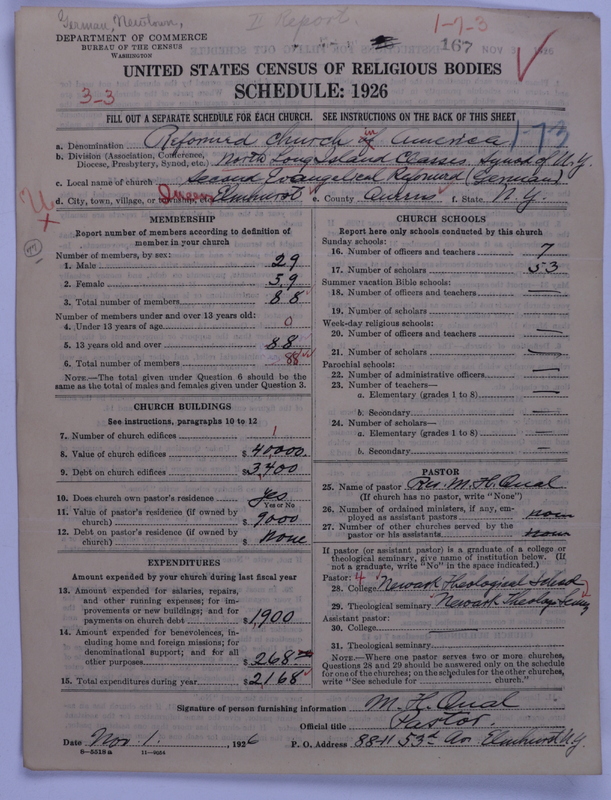 German, Newtown,
II Report.
1-7-3
DEPARTMENT OF COMMERCE
BUREAU OF THE CENSUS
WASHINGTON
167
UNITED STATES CENSUS OF RELIGIOUS BODIES
SCHEDULE: 1926
3-3
FILL OUT A SEPARATE SCHEDULE FOR EACH CHURCH. SEE INSTRUCTIONS ON THE BACK OF THIS SHEET
a. Denomination Reformed Church in America 1-73
b. Division (Association, Conference, Diocese, Presbytery, Synod, etc.) North Long Island Classes. Synod of N.Y.
c. Local name of church Second Evangelical Reformed (German)
d. City, town, village, or township Elmhurst e. County Queens f. State N.Y.
MEMBERSHIP
Report number of members according to definition of
member in your church
Number of members, by sex:
1. Male 29
2. Female 59
3. Total number of members 88
Number of members under and over 13 years old:
4. Under 13 years of age 0
5. 13 years old and over 88
6. Total number of members 88
NOTE.—The total given under Question 6 should be the
same as the total of males and females given under Question 3.
CHURCH BUILDINGS
See instructions, paragraphs 10 to 12
7. Number of church edifices 1
8. Value of church edifices $ 40,000.
9. Debt on church edifices $ 3,400
10. Does church own pastor's residence yes
Yes or No
11. Value of pastor's residence (if owned by
church) $ 9000
12. Debt on pastor's residence (if owned by
church) $ None
EXPENDITURES
Amount expended by your church during last fiscal year
13. Amount expended for salaries, repairs,
and other running expenses; for im-
provements or new buildings; and for
payments on church debt $ 1,900
14. Amount expended for benevolences, in-
cluding home and foreign missions; for
denominational support; and for all
other purposes $ 268
15. Total expenditures during year $ 2168
CHURCH SCHOOLS
Report here only schools conducted by this church
Sunday schools:
16. Number of officers and teachers 7
17. Number of scholars 53
Summer vacation Bible schools:
18. Number of officers and teachers —
19. Number of scholars
Week-day religious schools:
20. Number of officers and teachers —
21. Number of scholars —
Parochial schools:
22. Number of administrative officers —
23. Number of teachers—
a. Elementary (grades 1 to 8) —
b. Secondary —
24. Number of scholars—
a. Elementary (grades 1 to 8) —
b. Secondary —
PASTOR
25. Name of pastor Rev. M. H. Qual
(If church has no pastor, write "None")
26. Number of ordained ministers, if any, em-
ployed as assistant pastors none
27. Number of other churches served by the
pastor or his assistants none
If pastor (or assistant pastor) is a graduate of a college or
theological seminary, give name of institution below. (If
not a graduate, write "No" in the space indicated.)
Pastor: 4
28. College Newark Theological School
29. Theological seminary Newark Theolog. Semy
Assistant pastor:
30. College —
31. Theological seminary
NOTE.—Where one pastor serves two or more churches,
Questions 28 and 29 should be answered only on the schedule
for one of the churches; on the schedules for the other churches,
write "See schedule for church."
Signature of person furnishing information M. H. Qual
Official title Pastor.
Date Nov. 1., 1926 P. O. Address 8811 53d Av. Elmhurst N.Y.
8-5518a 11-9664